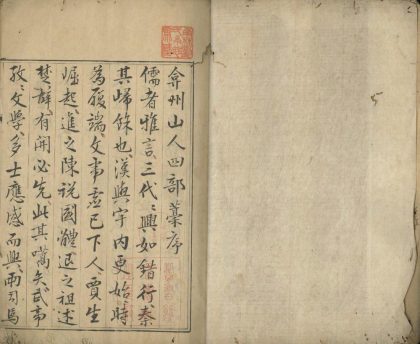 弇州山人四部藁序
儒者雅言三代〻興如錯行秦
其歸餘也漢興宇內更始時
為履端文帝虛已下人賈生
崛起進之陳說國體退之祖述
楚辭有開必先此其嚆矢武帝
孜〻文學多士應感而興兩司馬